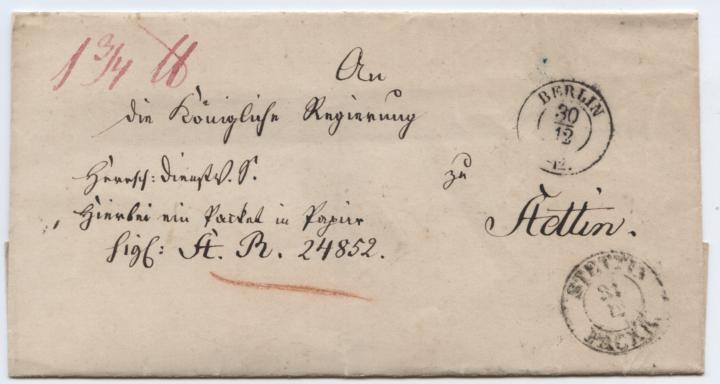 1 3/4 ℔
An
die Königliche Regierung
zu
Stettin.
Herrsch: Dienst. S.
Hierbei ein Packet in Papier
sig: St. R. 24852.
BERLIN
30
12
STETTIN
31
12
PACK